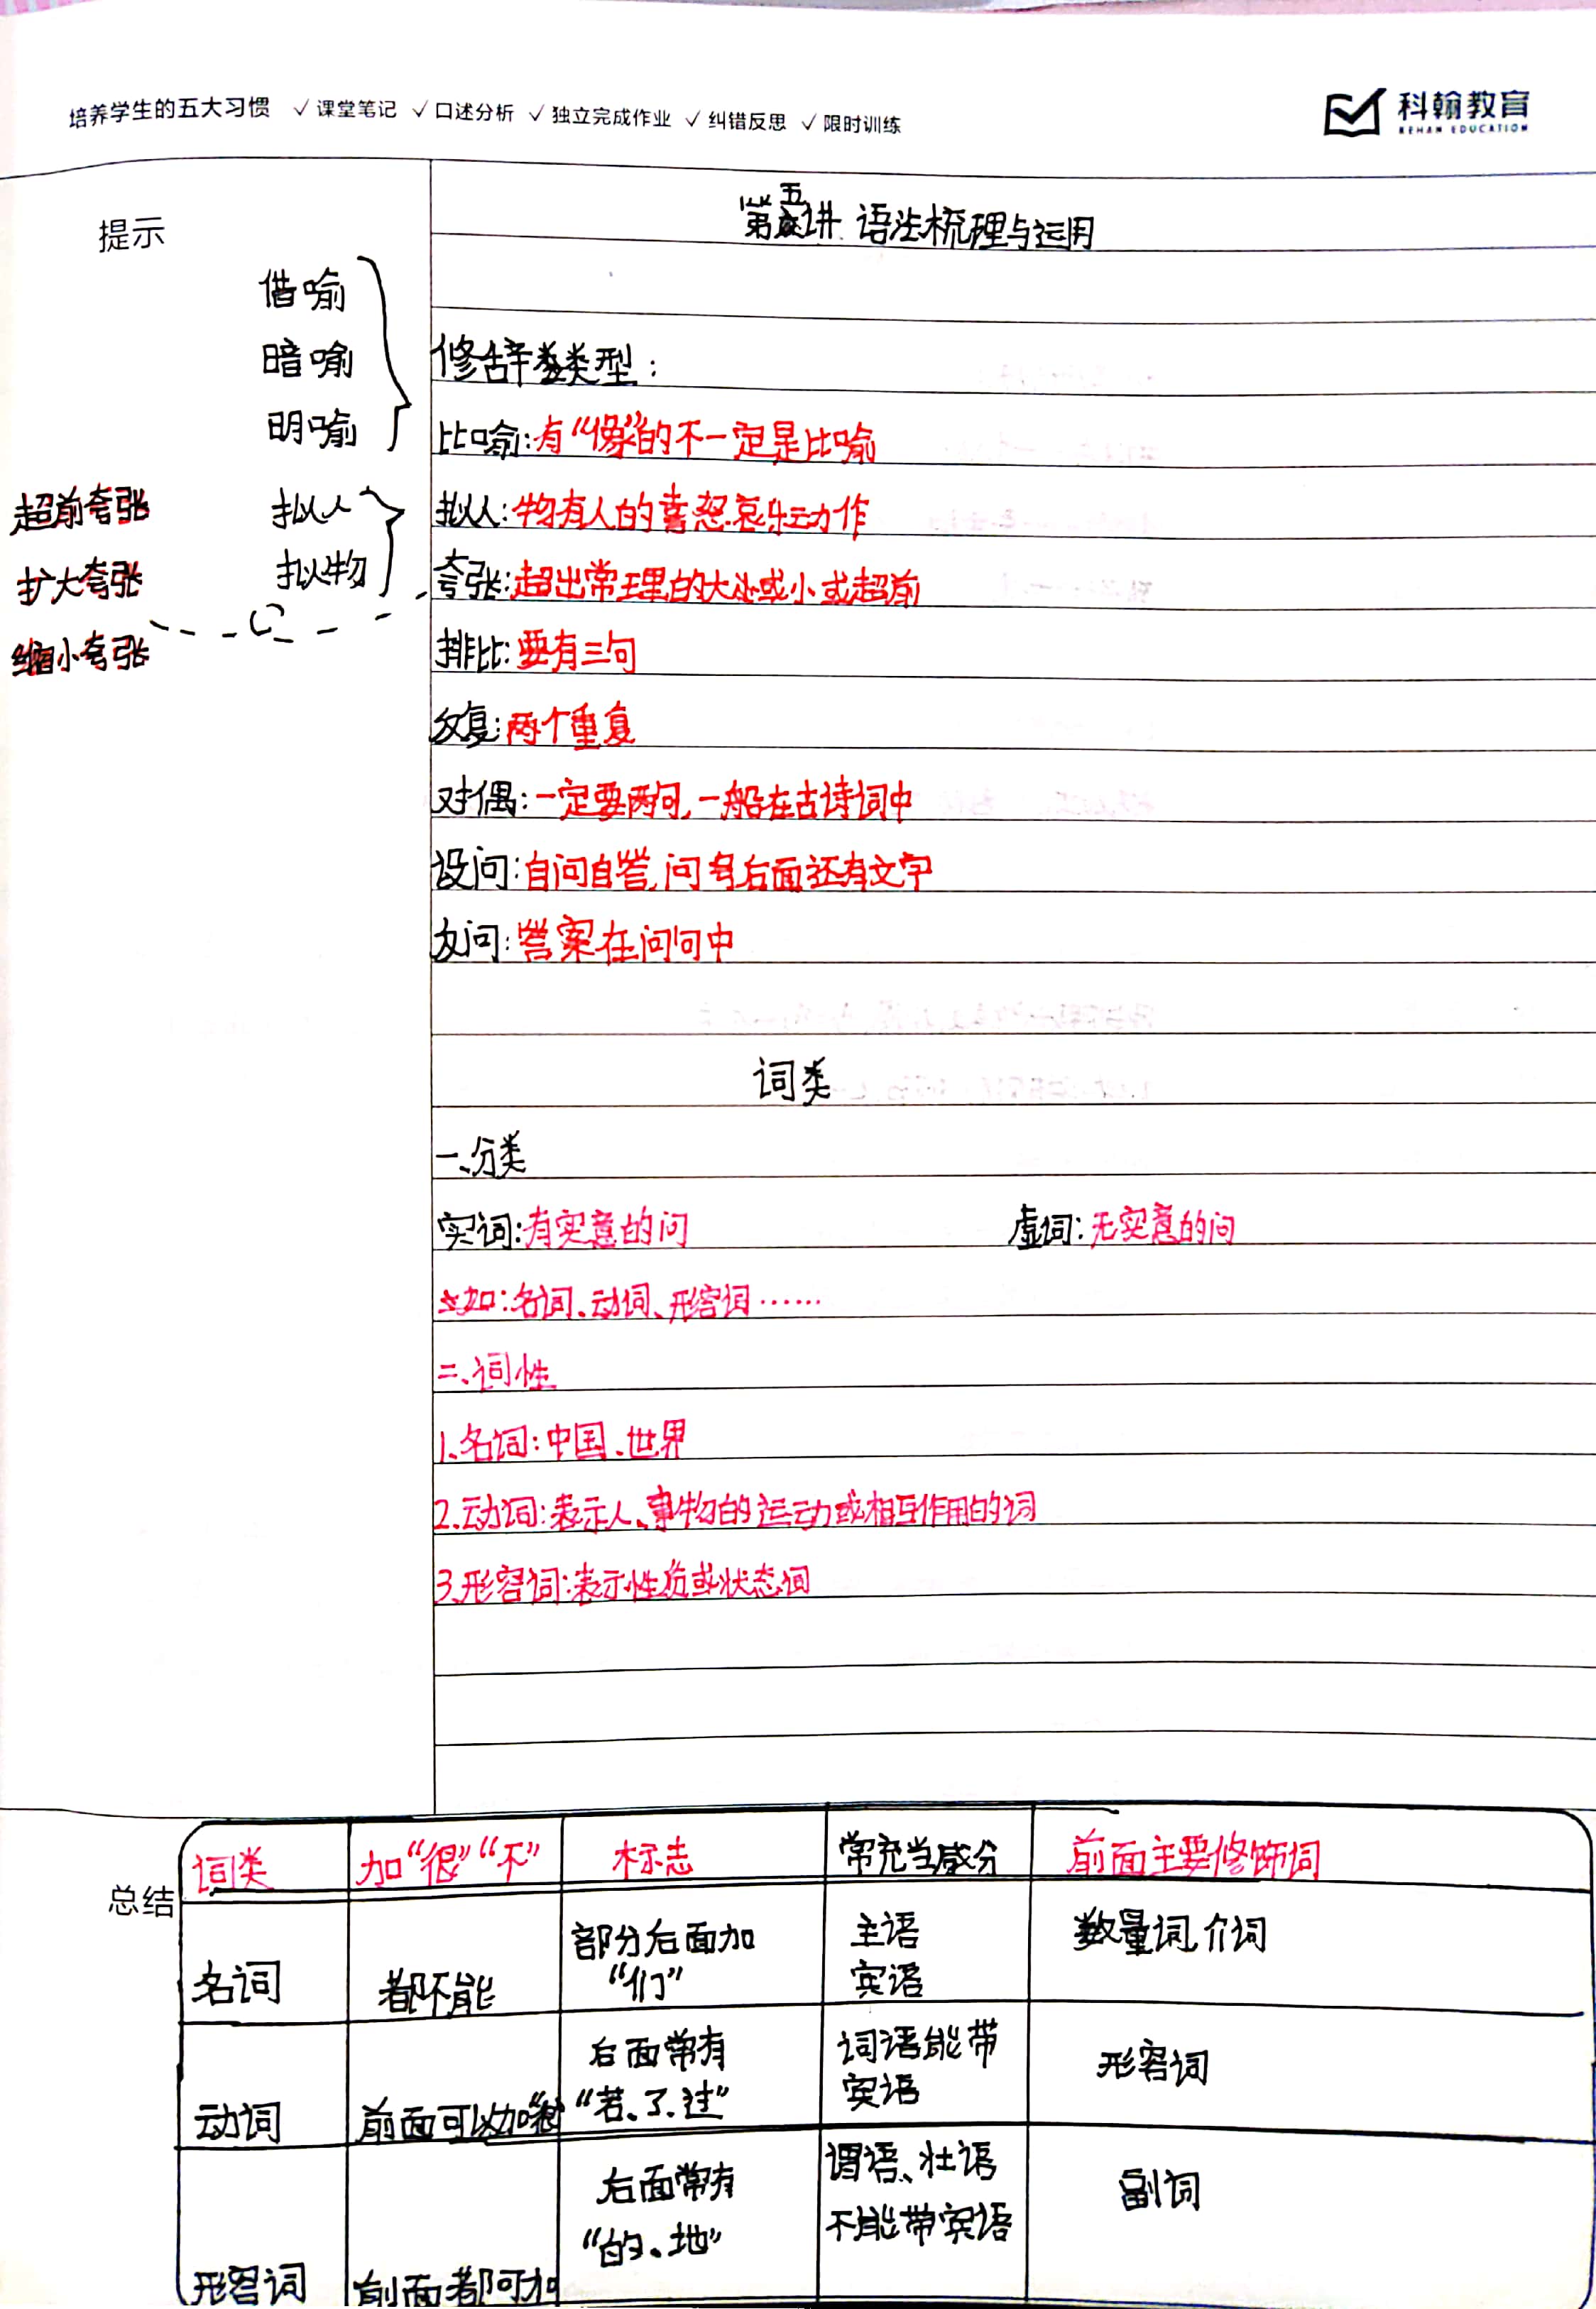 培养学生的五大习惯 ✓课堂笔记 ✓口述分析 ✓独立完成作业 ✓纠错反思 ✓限时训练
科翰教育
KEHAN EDUCATION
提示
第五讲 语法梳理与运用
借喻
暗喻
明喻
修辞类型:
比喻:有“像”的不一定是比喻
超前夸张
扩大夸张
缩小夸张
拟人
拟物
拟人:物有人的喜怒哀乐动作
夸张:超出常理的大或小或超前
排比:要有三句
反复:两个重复
对偶:一定要两句,一般在古诗词中
设问:自问自答,问号后面还有文字
反问:答案在问句中
词类
一、分类
实词:有实意的词 虚词:无实意的词
如:名词、动词、形容词……
二、词性
1.名词:中国、世界
2.动词:表示人、事物的运动或相互作用的词
3.形容词:表示性质或状态词
总结
词类 加“很”“不” 标志 常充当成分 前面主要修饰词
名词 都不能 部分后面加“们” 主语 宾语 数量词、介词
动词 前面可以加 后面常有“着、了、过” 词语能带宾语 形容词
形容词 前面都可加 后面常有“的、地” 谓语、壮语 不能带宾语 副词